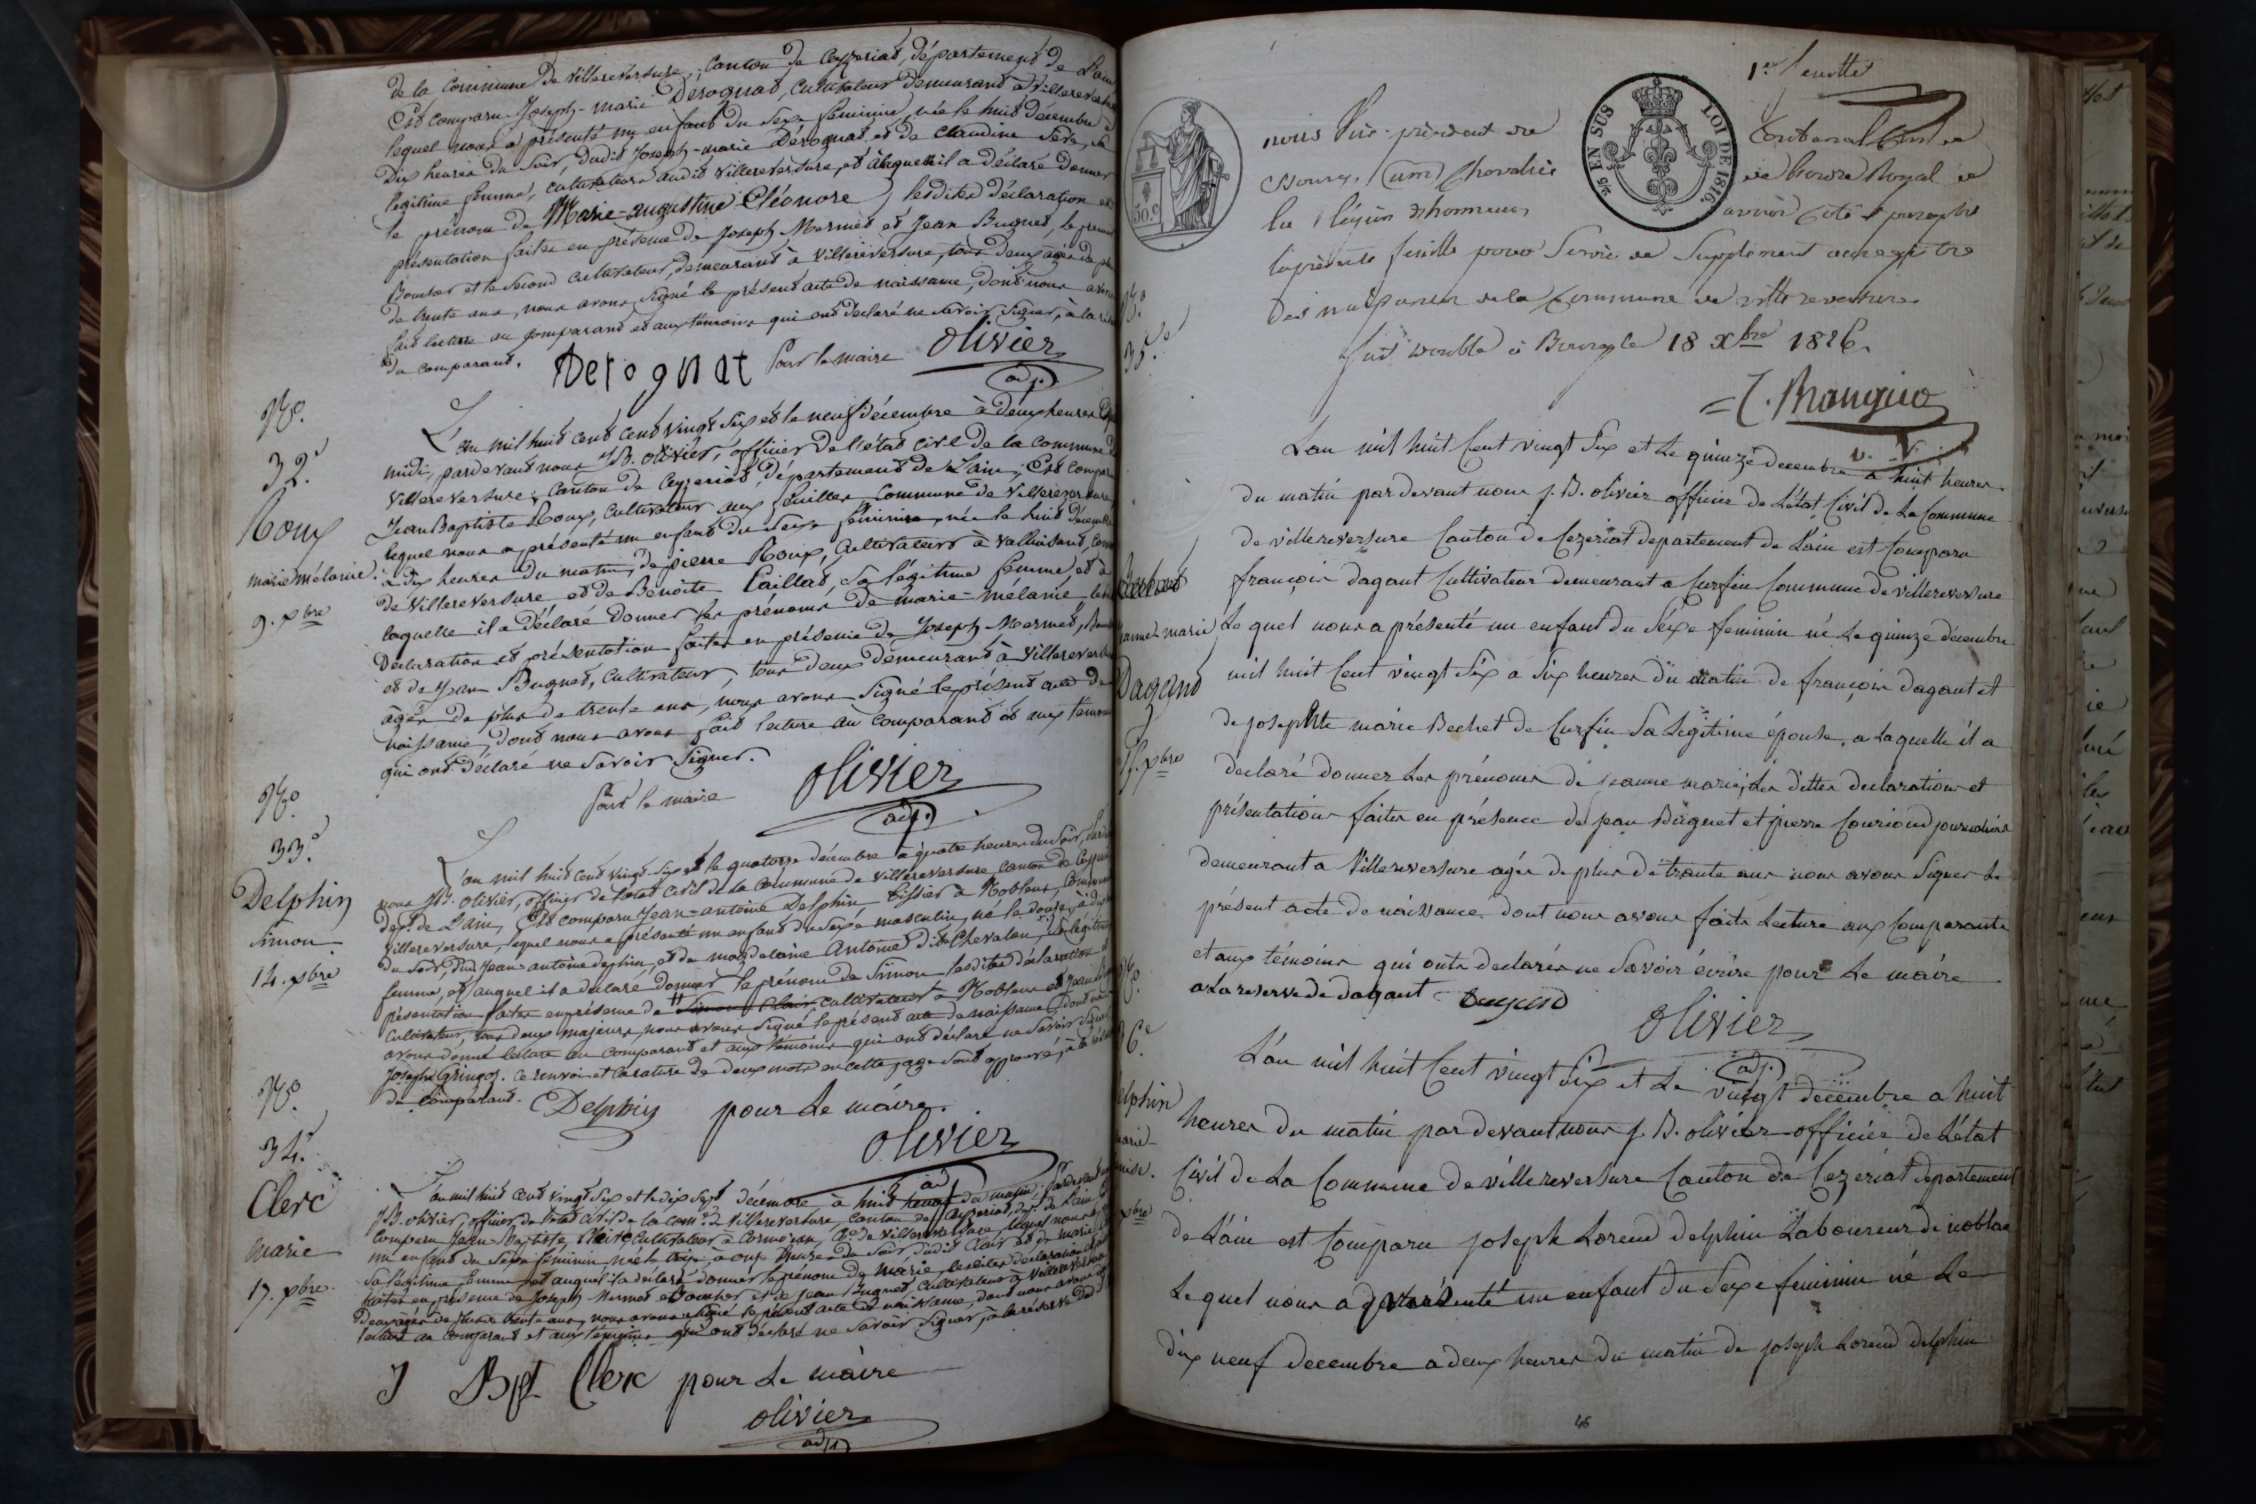 de la commune de Villereversure, Canton de Ceyzeriat, département de L'ain
Est comparu Joseph-marie Derognat, cultivateur demeurant à Villereversure
lequel nous a présenté un enfant du sexe féminin, née le huit décembre à
dix heures du soir, dudit Joseph-marie Derognat et de Claudine Sève, sa
légitime femme, cultivateurs audit Villereversure, et à laquelle il a déclaré donner
le prénom de Marie-augustine Eléonore, lesdites déclaration et
présentation faites en présence de Joseph Mermet et Jean Buguet, le premier
et le second cultivateur, demeurant à Villereversure, tous deux agés de plus
de trente ans, nous avons signé le présent acte de naissance, dont nous avons
fait lecture au comparant et aux témoins qui ont déclaré ne savoir signer, à la réserve
du comparant.
Derognat Pour le maire Olivier
adj.
No.
32.e
Roux
marie mélanie.
9. xbre
L'an mil huit cent cent vingt six et le neuf décembre à deux heures
midi, pardevant nous JB. Olivier, officier de l'état civil de la commune de
Villereversure, Canton de Ceyzeriat, département de L'ain, Est comparu
Jean Baptiste Roux, cultivateur aux feuilles, Commune de Villereversure
lequel nous a présenté un enfant du sexe féminin, née le huit décembre
à dix heures du matin, de pierre Roux, cultivateurs à
de Villereversure et de Benoite Caillat, sa légitime femme et à
laquelle il a déclaré donner les prénoms de marie-mélanie, les
Déclaration et présentation faites en présence de Joseph Mermet,
et de Jean Buguet, cultivateur, tous deux demeurant à Villereversure
âgés de plus de trente ans, nous avons signé le présent acte de
naissance, dont nous avons fait lecture au comparant et aux témoins
qui ont déclaré ne savoir signer.
Pour le maire Olivier
adj.
No.
33.e
Delphin
Simon
14. xbre
L'an mil huit cent vingt six et le quatorze décembre à quatre heures du soir,
nous JB. Olivier, officier de l'état civil de la commune de Villereversure, canton de
dépt. de L'ain, Est comparu Jean-antoine Delphin tissier à Noblens, Commune
Villereversure, lequel nous a présenté un enfant du sexe masculin, né le douze, à dix
du soir, dud. Jean-antoine Delphin, et de magdelaine Antoine dit Chevalon, sa légitime
femme, et auquel il a déclaré donner le prénom de Simon lesdites déclaration et
présentation faites en présence de cultivateur à Noblens et
cultivateur, tous deux majeurs, nous avons signé le présent acte de naissance, dont nous
avons donné lecture au comparant et aux témoins qui ont déclaré ne savoir signer
Joseph Gringoz. ce renvoi et la rature de deux mots en cette page sont approuvés, à la réserve
du comparant. Delphin pour Le maire.
Olivier
adj
No.
34.e
Clerc
marie
17. xbre
L'an mil huit cent vingt six et le dix sept décembre à huit heures du matin pardevant
JB. Olivier, officier de l'état civil de la com.e de Villereversure, canton de Ceyzeriat, dépt. de L'ain
comparu Jean-Baptiste Clerc cultivateur à Cormoran, C.e de Villereversure, lequel nous a
un enfant du sexe féminin, né le à onze heures du soir dudit Clerc et de marie
sa légitime femme, et auquel il a déclaré donner le prénom de marie, lesdites déclaration
faites en présence de Joseph Mermet et de Jean Buguet, cultivateur à Villereversure
Deux agés de plus de trente ans, nous avons signé le présent acte de naissance, dont nous avons
lecture au comparant et aux témoins qui ont déclaré ne savoir signer, à la réserve dud.
J Bpt Clerc pour Le maire
Olivier
adj
1.re feuille
EN SUS
LOI DE 1816.
50.c
nous Vice-président du Tribunal Civil de
Bourg, (ain) Chevalier de L'ordre Royal de
la légion d'honneur, avons coté & paraphé
la présente feuille pour Servir de Supplément au registre
des naissances de la Commune de Villereversure
fait double à Bourg le 18 xbre 1826.
No.
35.e
Bechet
jeanne marie
Dagand
15. xbre
Lan mil huit Cent vingt Six et Le quinze decembre a huit heures
du matin par devant nous J. B. olivier officier de L'état Civil de La Commune
de villereversure Canton de Cezeriat departement de L'ain est Comparu
françois dagant Cultivateur demeurant a Curfin Commune de villereversure
Le quel nous a présenté un enfant du Sexe feminin né Le quinze décembre
mil huit Cent vingt Six a Six heures du matin de françois dagant et
de josephte marie Bechet de Curfin Sa Legitime épouse, a Laquelle il a
declaré donner Les prénoms de jeanne marie, Les dittes declaration et
présentation faites en présence de jean Buguet et pierre Courioud journaliers
demeurant a Villereversure agés de plus de trante ans nous avons Signer Le
présent acte de naissance dont nous avons faite Lecture aux Comparants
et aux témoins qui onts declarés ne Savoir écrire pour Le maire
a La reserve de dagant Dagand
Olivier
adj.
No.
36.e
Delphin
marie
xbre
L'an mil huit Cent vingt Six et Le vingt decembre a huit
heures du matin par devant nous J. B. olivier officier de L'état
Civil de La Commune de villereversure Canton de Cezeriat departement
de L'ain est Comparu joseph Lorend delphin Laboureur de noblan
Le quel nous a présenté un enfant du Sexe feminin né Le
dix neuf decembre a deux heures du matin de joseph Lorend delphin
46